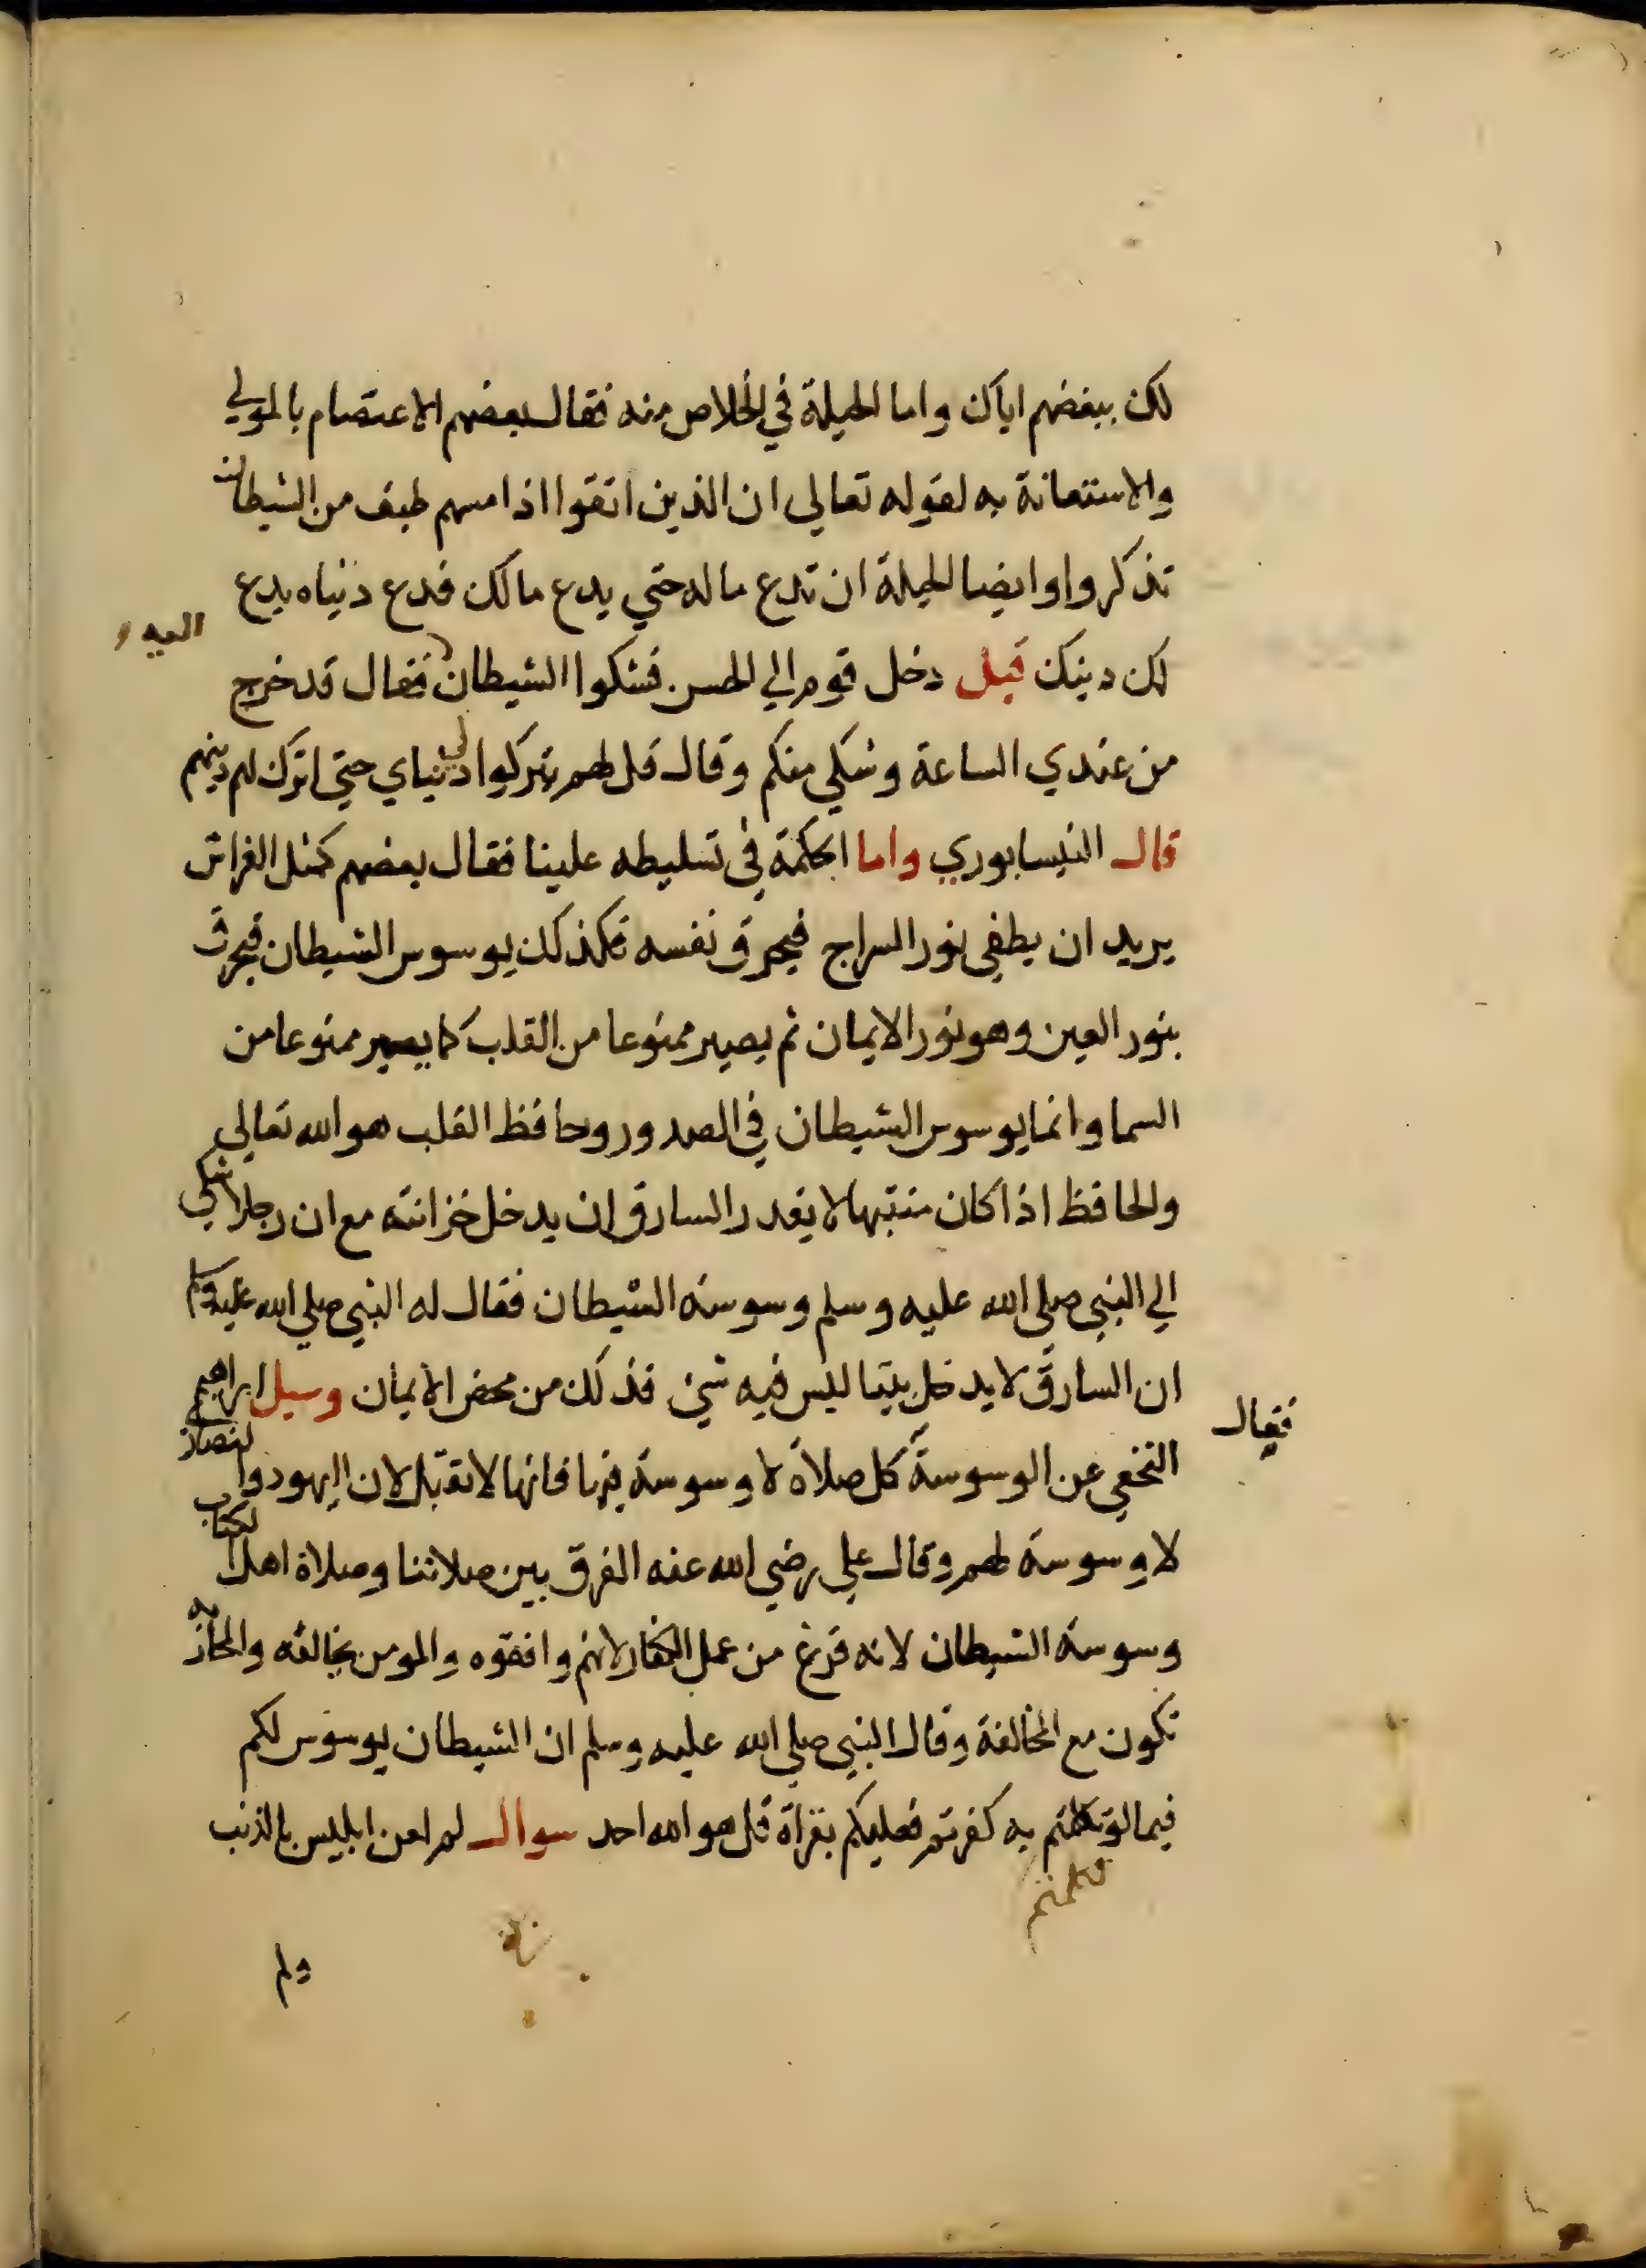 لك ببغضهم اياك واما الحيلة في الخلاص منه فقال بعضهم الاعتصام بالمولي
والاستعانة به لقوله تعالي ان الذين اتقوا اذا مسهم طيف من الشيطان
تذكروا وايضا الحيلة ان تدع ماله حتي يدع مالك فدع دنياه يدع
لك دينك قيل دخل قوم الي الحسن فشكوا الشيطان فقال قد خرج
اليه
من عندي الساعة وشكي منكم وقال قل لهم يتركوا لي دنياي حتي اترك لهم دينهم
قال النيسابوري واما الحكمة في تسليطه علينا فقال بعضهم كمثل الفراش
يريد ان يطفي نور السراج فيحرق نفسه فكذلك يوسوس الشيطان فيحرق
بنور العين وهو نور الايمان ثم يصير ممنوعا من القلب كما يصير ممنوعا من
السما وانما يوسوس الشيطان في الصدور وحافظ القلب هو الله تعالي
والحافظ اذا كان منتبها لا يقدر السارق ان يدخل خزانته مع ان رجلا شكي
الي النبي صلي الله عليه وسلم وسوسة الشيطان فقال له النبي صلي الله عليه وسلم
ان السارق لا يدخل بيتا ليس فيه شي فذلك من محض الايمان وسيل ابراهيم
فقال
النخعي عن الوسوسة كل صلاة لا وسوسة فيها فانها لا تقبل لان اليهود والنصاري
لا وسوسة لهم وقال علي رضي الله عنه الفرق بين صلاتنا وصلاة اهل الكتاب
وسوسة الشيطان لانه فرغ من عمل الكفار لانهم وافقوه والمومن يخالفه والمحاربه
تكون مع المخالفة وقال النبي صلي الله عليه وسلم ان الشيطان يوسوس لكم
فيما لو تكلمتم به كفرتم فعليكم بقراة قل هو الله احد سوال لم لعن ابليس بالذنب
تكلمتم
ولم